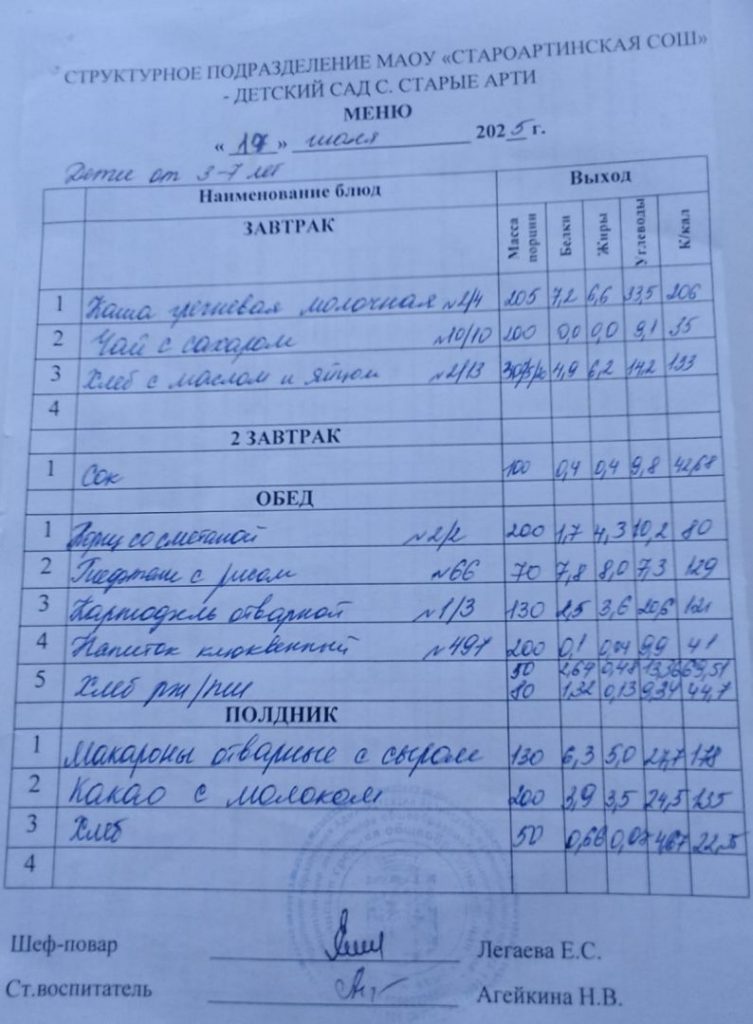 СТРУКТУРНОЕ ПОДРАЗДЕЛЕНИЕ МАОУ «СТАРОАРТИНСКАЯ СОШ»
- ДЕТСКИЙ САД С. СТАРЫЕ АРТИ
МЕНЮ
« 17 » июля 2025 г.
Дети от 3-7 лет
Наименование блюд Выход
ЗАВТРАК Масса порции Белки Жиры Углеводы К/кал
1 Каша гречневая молочная №2/4 205 7,2 6,6 33,5 206
2 Чай с сахаром №10/10 200 0,0 0,0 9,1 35
3 Хлеб с маслом и яйцом №2/13 4,9 6,2 14,2 133
4
2 ЗАВТРАК
1 Сок 100 0,4 0,4 9,8 42,68
ОБЕД
1 Борщ со сметаной №2/2 200 1,7 4,3 10,2 80
2 Тефтели с рисом №66 70 7,8 8,0 7,3 129
3 Картофель отварной №1/3 130 2,5 3,6 20,6 121
4 Напиток клюквенный №497 200 0,1 0,04 9,9 41
5 Хлеб рж/пш 50 2,64 0,48 13,36 69,51
80 1,32 0,13 9,34 44,7
ПОЛДНИК
1 Макароны отварные с сыром 130 6,3 5,0 27,7 178
2 Какао с молоком 200 3,9 3,5 24,5 235
3 Хлеб 50 0,66 0,07 4,67
4
Шеф-повар Легаева Е.С.
Ст.воспитатель Агейкина Н.В.